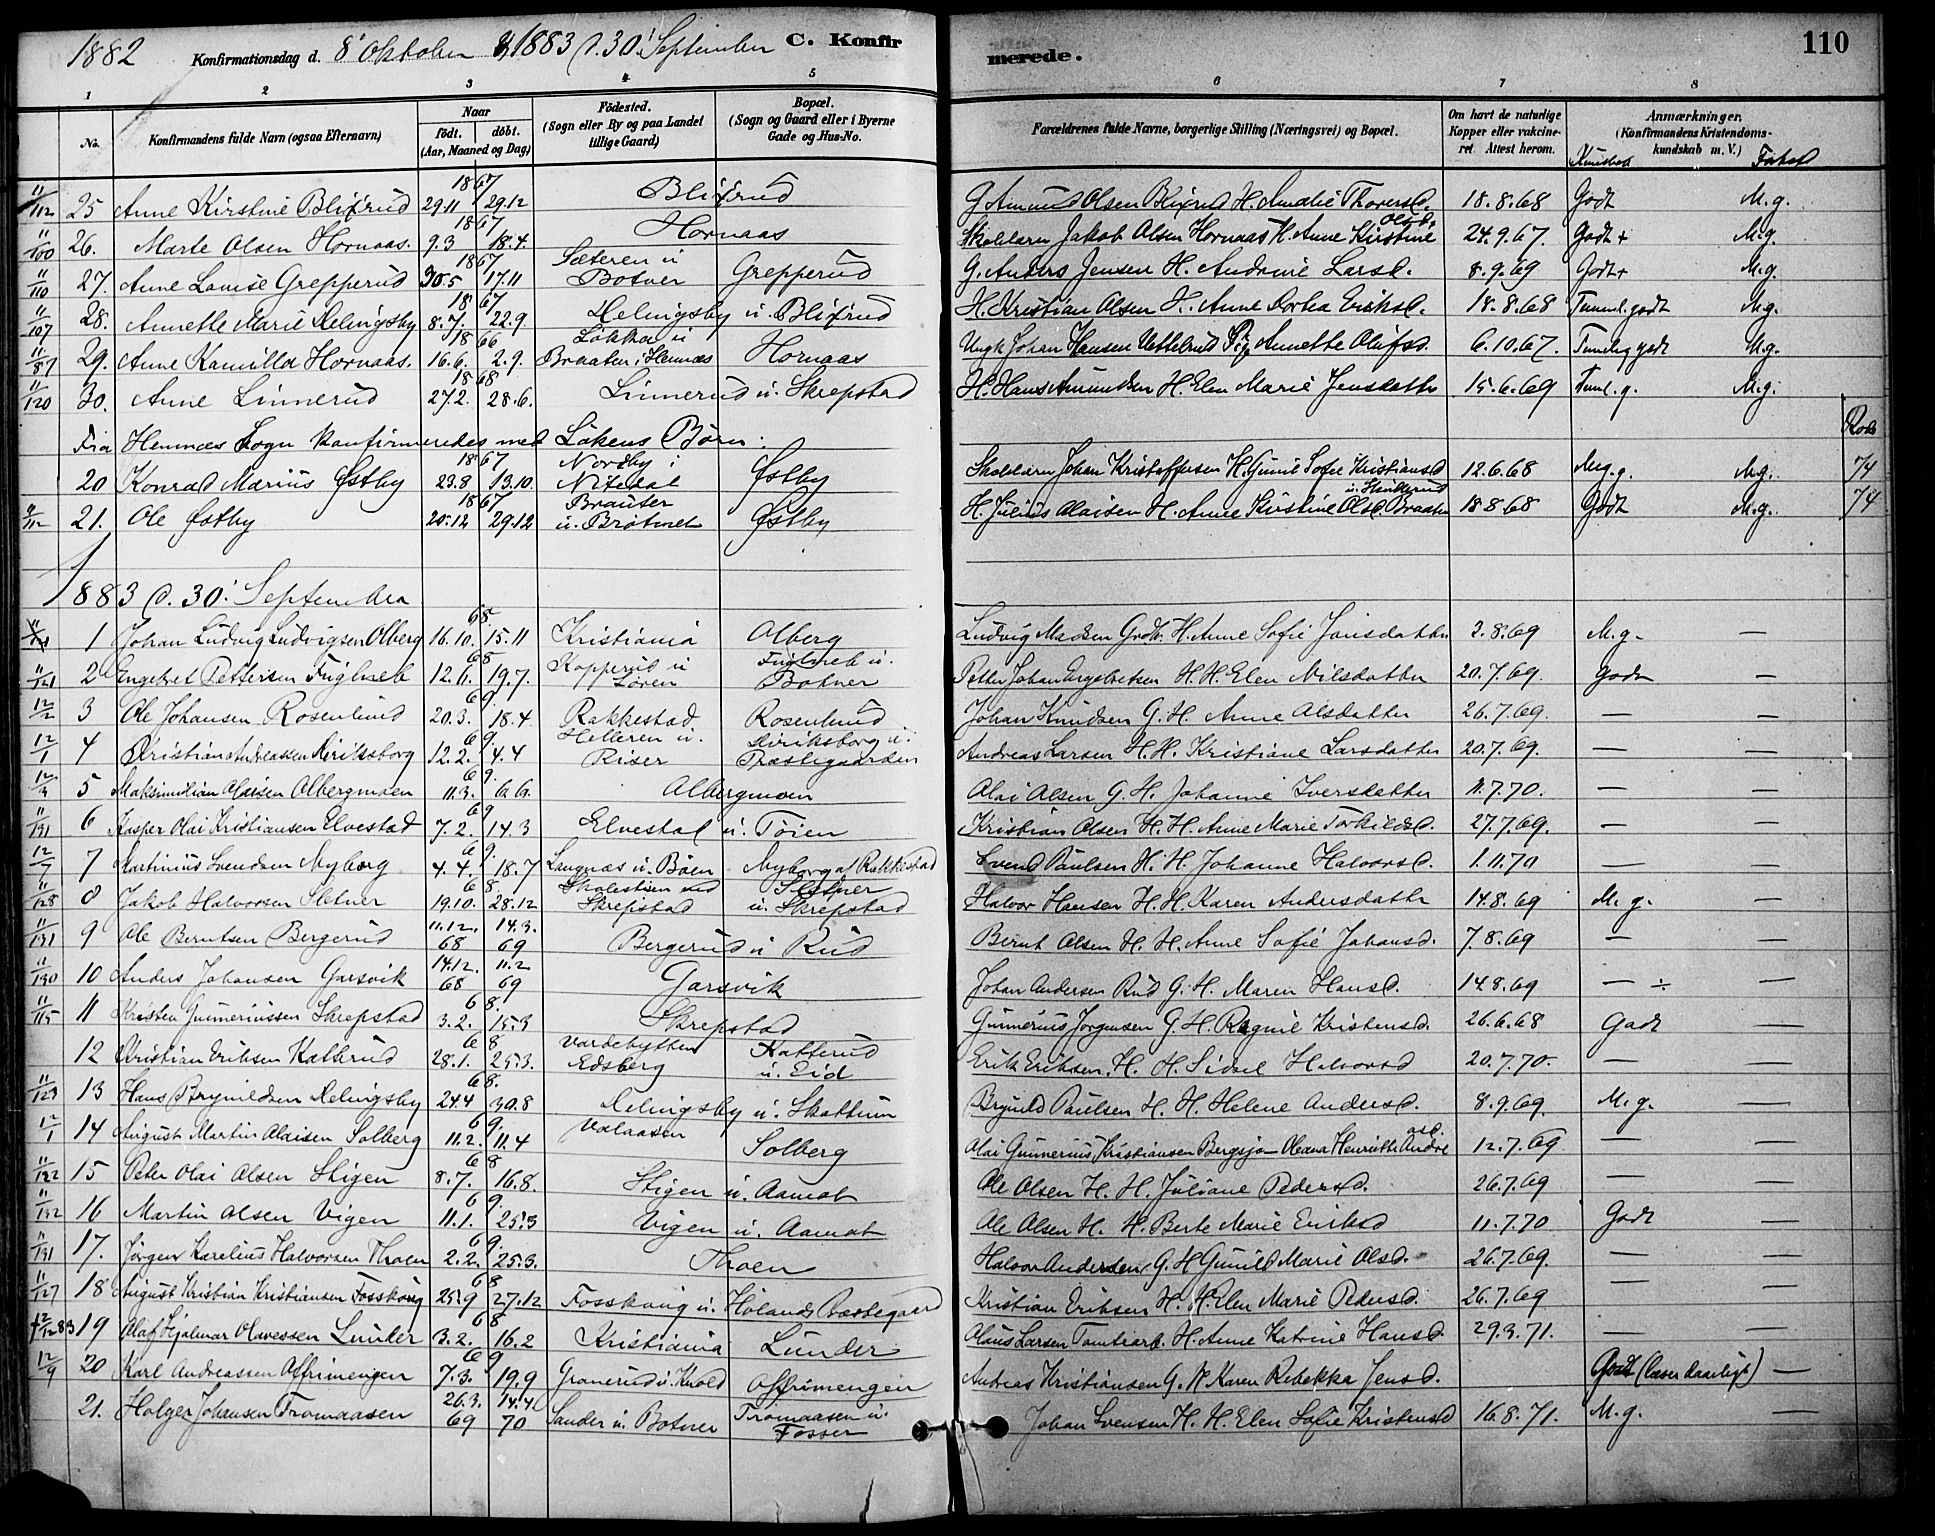 1882 Konfirmationsdag d. 8' Oktober & 1883 d. 30' September C. Konfirmerede. 110
1 2 3 4 5 6 7 8
No. Konfirmandens fulde Navn (ogsaa Efternavn) Naar født. døbt. (Aar, Maaned og Dag) Fødested. (Sogn eller By og paa Landet tillige Gaard) Bopæl. (Sogn og Gaard eller i Byerne Gade og Hus-No. Forældrenes fulde Navne, borgerlige Stilling (Næringsvei) og Bopæl. Om havt de naturlige Kopper eller vakcineret. Attest herom. Anmærkninger. (Konfirmandens Kristendomskundskab m. V.) Kundskab Forhold
11/112 25 Anne Kirstine Blixrud 1867 29.11 29.12 Blixrud G. Amund Olsen Blixrud H. Amalie Thorersd. 18.8.68 Godt M.g.
11/100 26. Marte Olsen Hornaas. 1867 9.3 18.4. Hornaas Skolelærer Jakob Olsen Hornaas H. Anne Kirstine Olsd. 24.9.67. Godt + M.g.
11/110 27. Anne Lovise Grepperud 1867 30.5 17.11 Sæteren u Botner Grepperud G. Anders Jensen H. Andrine Larsd. 8.9.69 Godt + M.g.
11/107 28. Annette Marie Helingsby 1867 8.7. 22.9. Helingsby u. Blixrud H. Kristian Olsen H. Anne Dorthea Eriksd. 18.8.68 Temmel. godt M.g.
11/87 29. Anne Kamilla Hornaas. 1866 16.6. 2.9. Løkka u Braaten i Hemnæs Hornaas Ungk Johan Hansen Vettelrud Pige Annette Olufsd. 6.10.67. Temelig godt M.g.
11/120 30. Anne Linnerud 1868 27.2. 28.6. Linnerud u. Skrepstad H. Hans Amundsen H. Elen Marie Jensdatter 15.6.69 Teml. g. M.g.
Fra Hemnæs Sogn konfirmeredes med Løkens Børn.
20 Konrad Marius Østby 1867 23.8 13.10. Nordby i Nitedal Østby Skolelærer Johan Kristoffersen H. Gunil Sofie Kristiansd 12.6.68 Meg. g. M.g. 74
21. Ole Østby 1867 20.12 29.12 Brauter u. Brøtnet Østby H. Julius Olaisen H. Anne Kirstine Olsd. Braaten 18.8.68 Godt M.g. 74
1883 d. 30' September
1 Johan Ludvig Ludvigsen Olberg 68. 16.10. 15.11 Kristiania Olberg Ludvig Madsen H. Anne Sofie Jonsdatter 2.8.69 M.g. —
11/121 2 Engebret Pettersen Fuglneb 68 12.6. 19.7. Kopperud u Løren Fuglneb u. Botner Petter Johan Engebretsen H. H. Elen Nilsdatter 20.7.69. Godt —
12/2 3 Ole Johansen Rosenlund 69. 20.3. 18.4. Rakkestad Rosenlund Johan Knudsen G. H. Anne Olsdatter 26.7.69. — —
12/1 4 Kristian Andreassen Diriksborg 69. 12.2. 4.4 Helleren u. Riser Diriksborg u. Præstegaarden Andreas Larsen H. H. Kristiane Larsdatter 20.7.69. — —
5 Maksimilian Olaisen Olbergmoen 69. 11.3. 6.6. Olbergmoen Olai Olsen G. H. Johanne Iversdatter 11.7.70. — —
11/131 6 Kasper Olai Kristiansen Elvestad 69 7.2. 14.3 Elvestad u. Toien Kristian Olsen H. H. Anne Marie Torkildsd. 27.7.69. — —
12/7 7 Martinius Svendsen Nyborg 69. 4.4. 18.7 Langnæs u. Bøen Nyborg af Rakkestad Svend Paulsen H. H. Johanne Halvorsd. 1.11.70 — —
11/128 8 Jakob Halvorsen Sletner 68. 19.10. 28.12 Skolestuen ved Skrepstad Sletner u. Skrepstad Halvor Hansen H. H. Karen Andersdatter 14.8.69 M.g. —
11/131 9 Ole Berntsen Bergerud 11.12. 68 14.3. 69 Bergerud u Rud Bernt Olsen H. H. Anne Sofie Johansd. 7.8.69 — —
11/130 10 Anders Johansen Garsvik 14.12. 68 11.2 69 Garsvik Johan Andersen Rud G. H. Maren Hansd. 14.8.69 — ÷ —
11/115 11 Kristen Gunneriussen Skrepstad 68. 3.2. 15.3 Skrepstad Gunnerius Jørgensen G. H. Ragnil Kristensd. 26.6.68 Godt —
12 Kristian Eriksen Katterud 68 28.1. 25.3. Vardebytten Edsberg Katterud u. Eid Erik Eriksen. H. H. Sidsel Halvorsd 20.7.70. — —
11/123 13 Hans Brynildsen Helingsby 68. 24.4 30.8 Helingsby u. Skattum Brynild Paulsen H. H. Helene Andersd. 8.9.69. M.g. —
12/1 14 August Martin Olaisen Solberg 69. 11.2. 11.4 Valaasen Solberg Olai Gunnerius Kristiansen Bergsjø Oleana Henriette Andre asd. 12.7.69 — —
11/122 15 Peter Olai Olsen Stigen 68 8.7. 16.8. Stigen u. Aamot Ole Olsen H. H. Juliane Pedersd. 26.7.69 — —
11/132 16 Martin Olsen Vigen 69. 11.1. 25.3 Vigen u. Aamot Ole Olsen H. H. Berte Marie Eriksd 11.7.70 Godt —
11/131 17. Jørgen Karelius Halvorsen Thoen 69. 2.2. 25.3. Thoen Halvor Andersen G. H Gunild Marie Olsd. 26.7.69. — —
11/127 18 August Kristian Kristiansen Fosskoug 68 25.9 27.12 Fosskoug u. Hølands Præstegaard Kristian Eriksen H. H. Elen Marie Pedersd. 26.7.69 — —
19 Olaf Hjalmar Olavessen Lunder 68 3.2. 16.2 Kristiania Lunder Olaus Larsen Tomtearb. H. Anne Katrine Hansd. 29.3.71. — —
12/9 20 Karl Andreassen Offrimengen 69 7.3. 19.9 Granerud u. Kvold Offrimengen Andreas Kristiansen G. H Karen Rebekka Jensd. Godt (læser daarligt) —
21. Holger Johansen Tromaasen 26.3. 69 14.4 70 Sander u. Botner Tromaasen u. Fosser Johan Svensen H. H Elen Sofie Kristensd 16.8.71. M.g. —